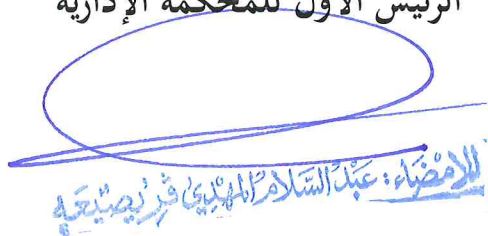 الرئيس الأول للمحكمة الإدارية
الامضاء: عبد السلام المهدي قريصيعه